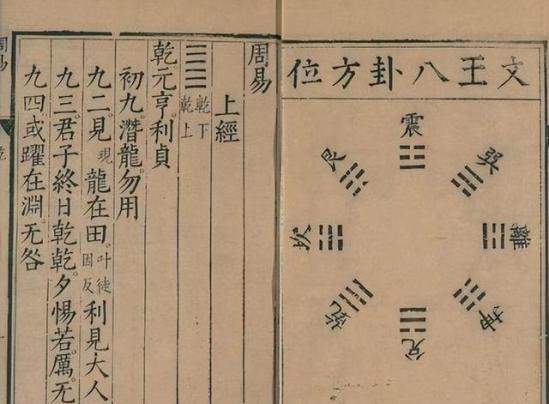 文王八卦方位
震
巽
離
坤
兌
乾
坎
艮
周易
上經
䷀乾下乾上
乾元亨。利貞
初九。潛龍。勿用
九二。見現龍在田。叶徒因反利見大人
九三。君子終日乾乾。夕惕若。厲。无
九四。或躍在淵。无咎
周易